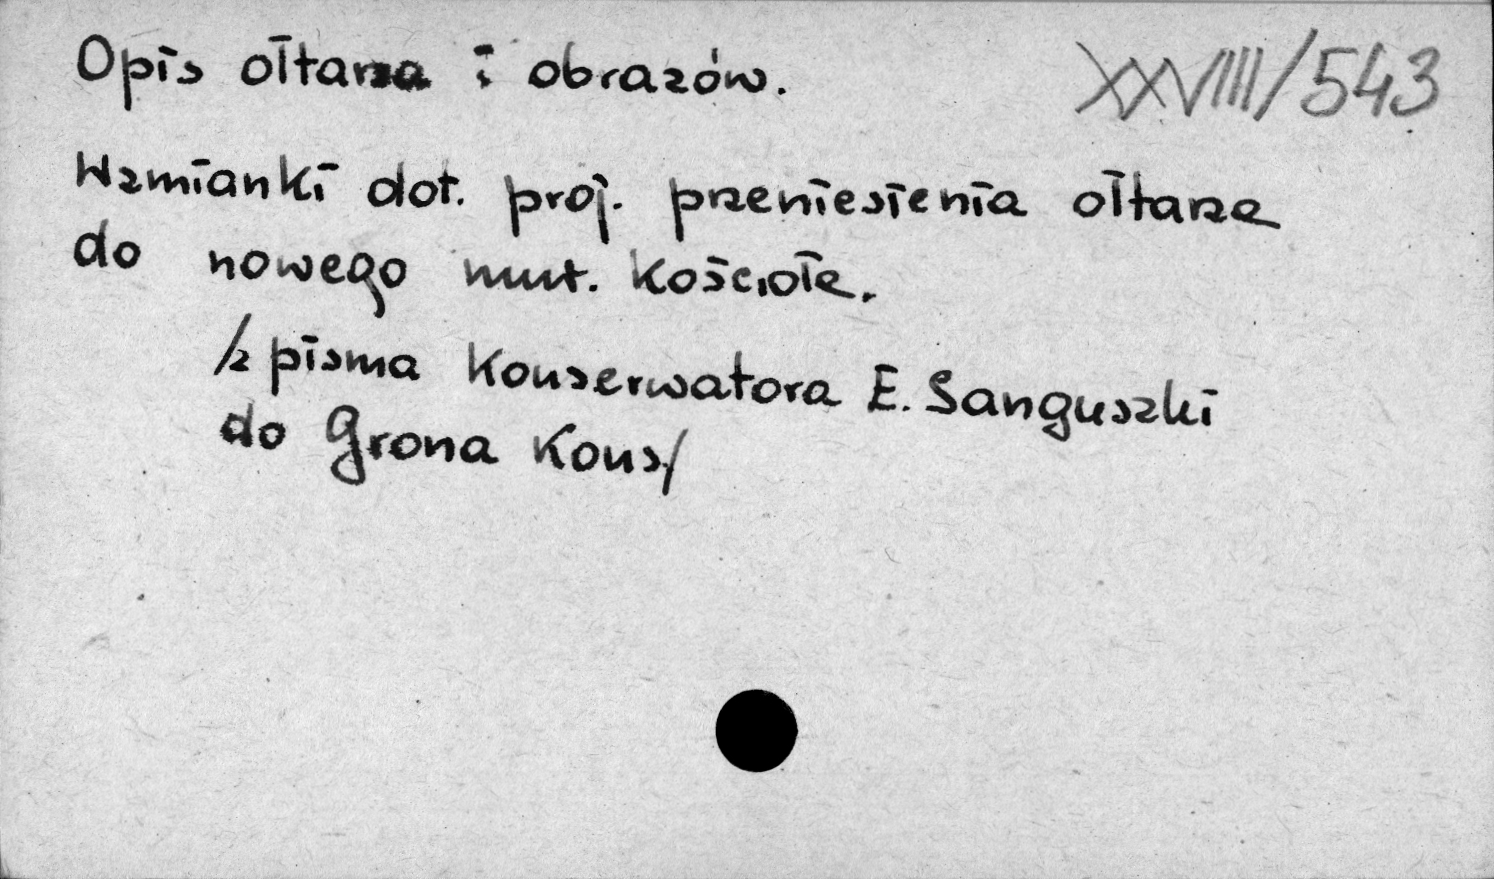 Opis ołtarza i obrazów. XXVIIII/543
Wzmianki dot. proj. przeniesienia ołtarza
do nowego mur. kościoła.
/z pisma Konserwatora E. Sanguszki
do Grona Kons/